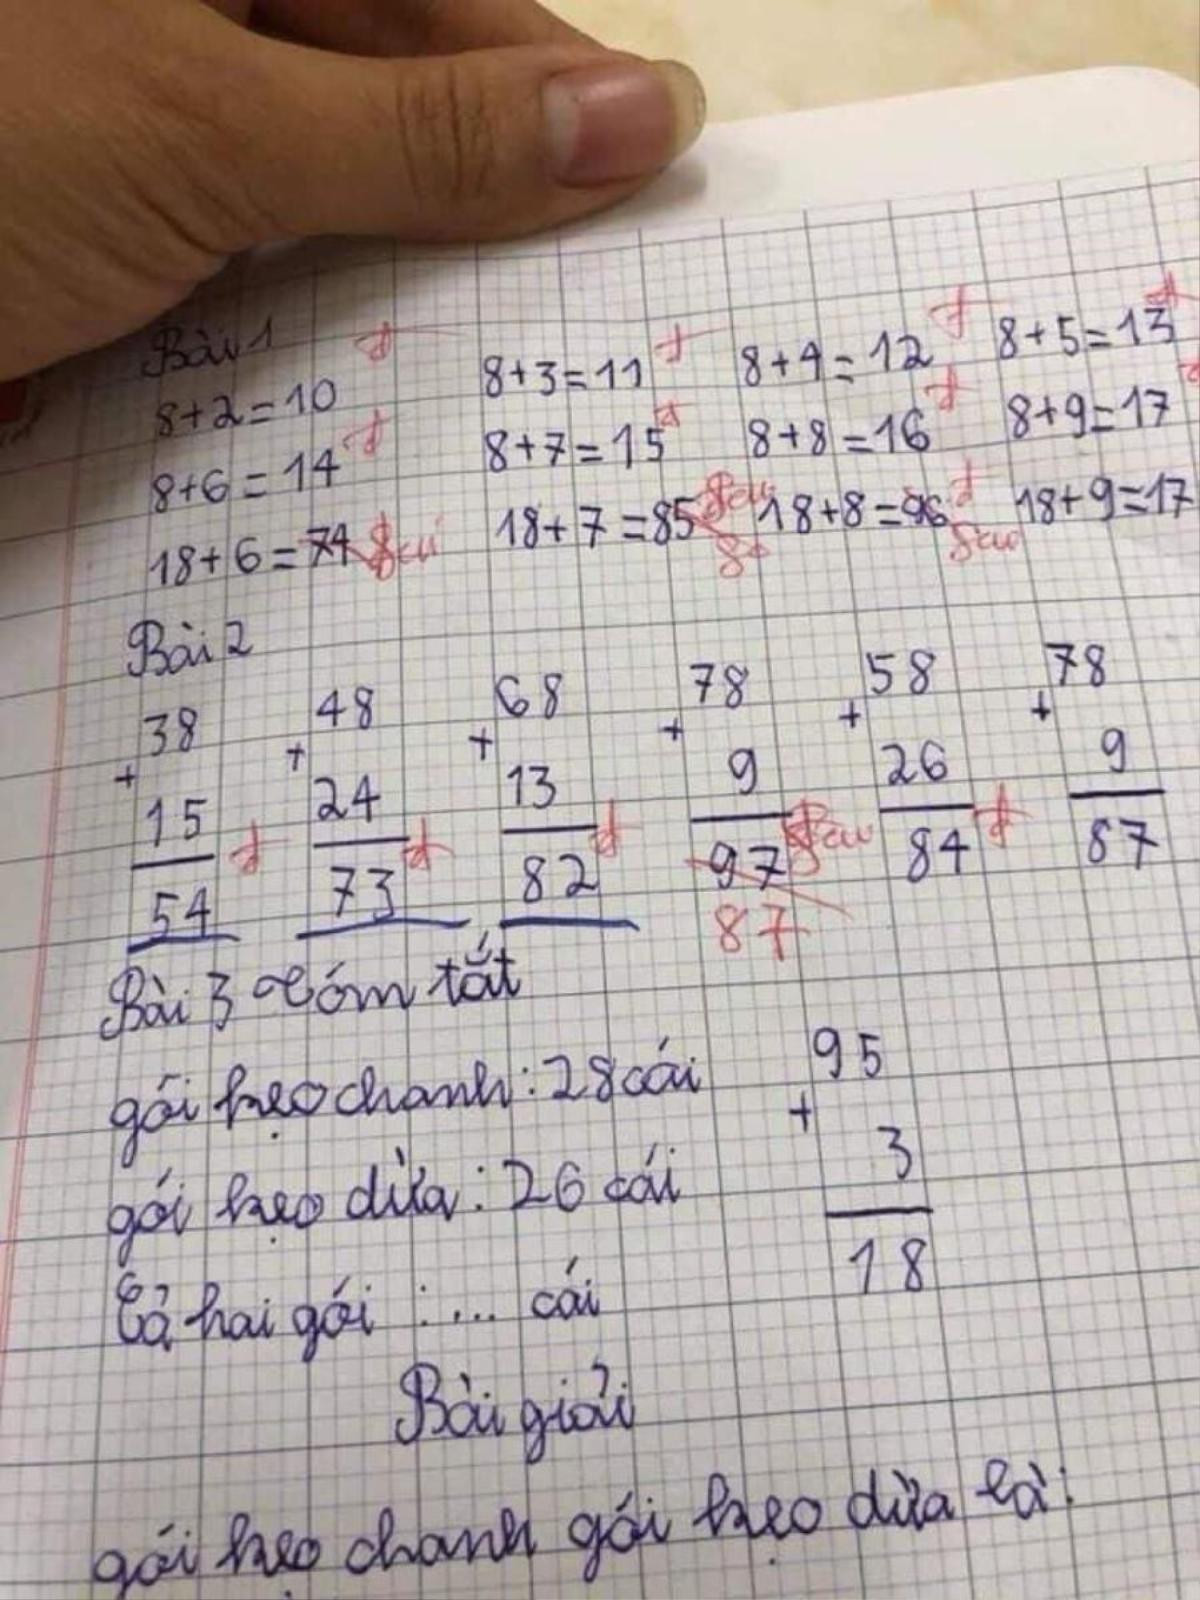 Bài 1
8+2=10 đ 8+3=11 đ 8+4=12 đ 8+5=13 đ
8+6=14 đ 8+7=15 đ 8+8=16 đ 8+9=17
18+6=74 sai 18+7=85 sai 18+8=96 sai 18+9=17
Bài 2
38 48 68 78 58 78
+ + + + + +
15 24 13 9 26 9
54 đ 73 đ 82 đ 97 sai 84 đ 87
87
Bài 3 Tóm tắt
gói kẹo chanh: 28 cái
gói kẹo dừa: 26 cái
Cả hai gói : .... cái
95
+
3
18
Bài giải
gói kẹo chanh gói kẹo dừa là: